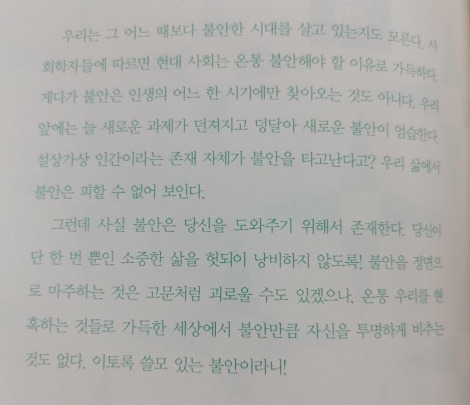 우리는 그 어느 때보다 불안한 시대를 살고 있는지도 모른다. 사
회학자들에 따르면 현대 사회는 온통 불안해야 할 이유로 가득하다.
게다가 불안은 인생의 어느 한 시기에만 찾아오는 것도 아니다. 우리
앞에는 늘 새로운 과제가 던져지고 덩달아 새로운 불안이 엄습한다.
설상가상 인간이라는 존재 자체가 불안을 타고난다고? 우리 삶에서
불안은 피할 수 없어 보인다.
그런데 사실 불안은 당신을 도와주기 위해서 존재한다. 당신이
단 한 번 뿐인 소중한 삶을 헛되이 낭비하지 않도록! 불안을 정면으
로 마주하는 것은 고문처럼 괴로울 수도 있겠으나, 온통 우리를 현
혹하는 것들로 가득한 세상에서 불안만큼 자신을 투명하게 비추는
것도 없다. 이토록 쓸모 있는 불안이라니!